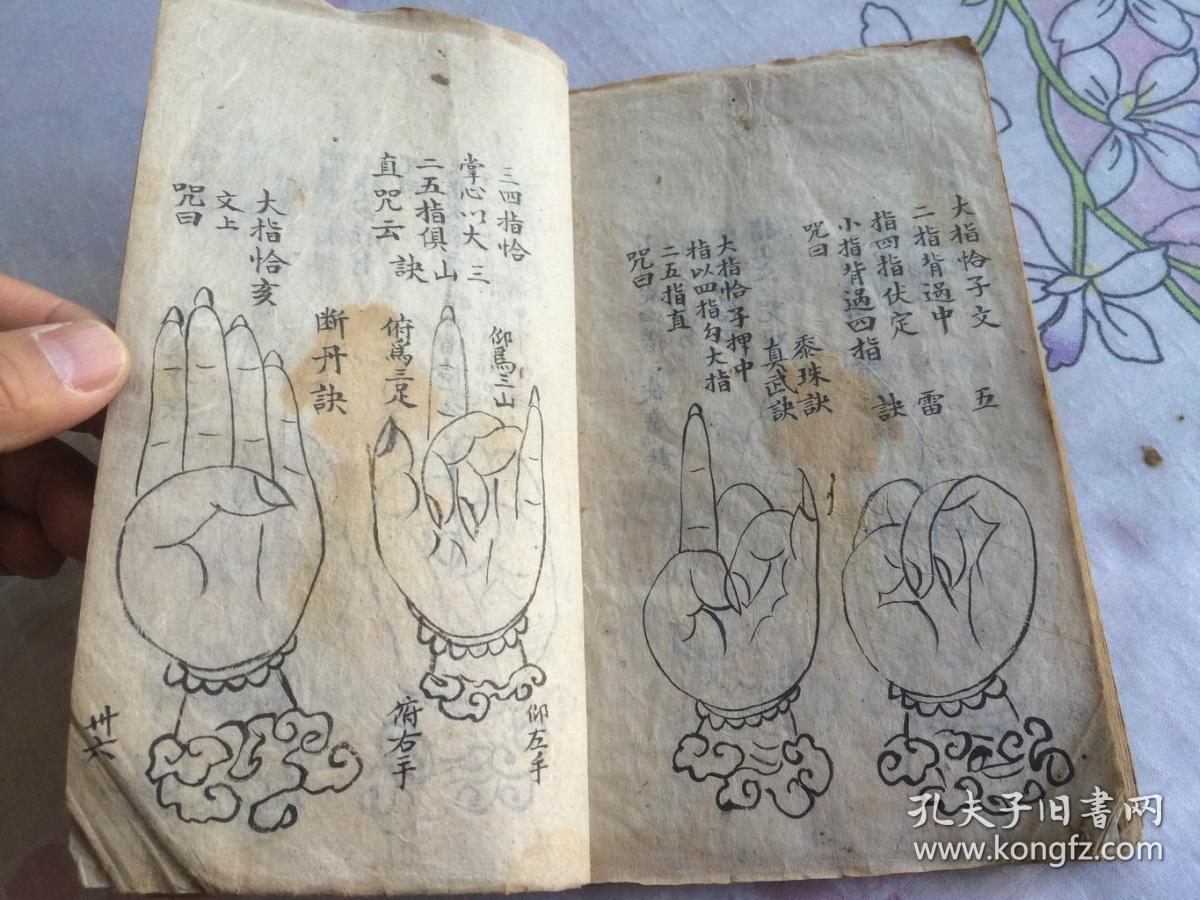 大指恰子文
二指背過中
指四指伏定
小指背過四指
咒曰
五
雷
訣
黍珠訣
真武訣
大指恰子押中
指以四指勾大指
二五指直
咒曰
三四指恰
掌心以大
二五指俱
直咒云
三
山
訣
仰爲三山
俯爲三足
仰左手
俯右手
断丹訣
大指恰亥
文上
咒曰
卅六
孔夫子旧书网
www.kongfz.com